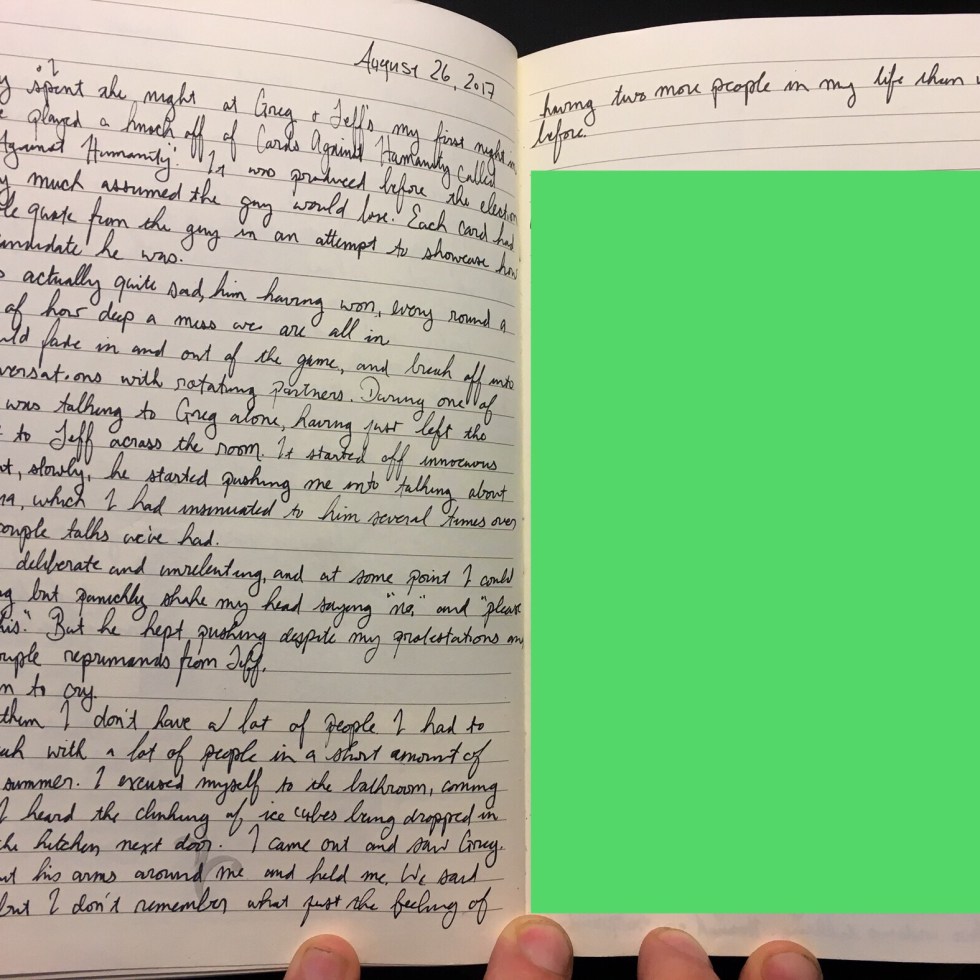 August 26, 2017
spent the night at Greg & Jeff's, my first night in
played a knock off of Cards Against Humanity called
Against Humanity". It was produced before the election
much assumed the guy would lose. Each card had
quote from the guy in an attempt to showcase how
he was.
actually quite sad, him having won, every round a
of how deep a mess we are all in
fade in and out of the game, and break off into
with rotating partners. During one of
was talking to Greg alone, having just left the
to Jeff across the room. It started off innocuous
slowly, he started pushing me into talking about
which I had insinuated to him several times over
couple talks we've had.
deliberate and unrelenting, and at some point I could
but panickly shake my head saying "no," and "please
this." But he kept pushing despite my protestations
reprimands from Jeff.
to cry.
them I don't have a lot of people I had to
with a lot of people in a short amount of
summer. I excused myself to the bathroom, coming
I heard the clinking of ice cubes being dropped in
the kitchen next door. I came out and saw Greg.
his arms around me and held me. We said
but I don't remember what just the feeling of
having two more people in my life than
before.